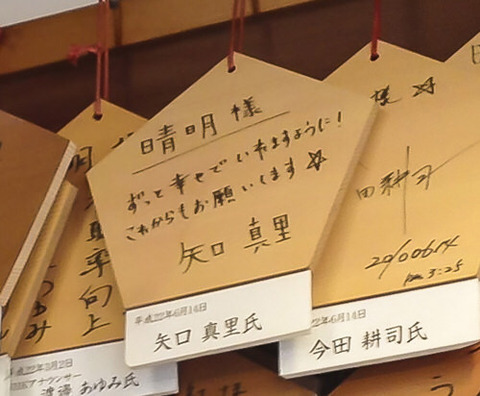 晴明様
ずっと幸せでいれますように!
これからもお願いします☆
矢口 真里
平成22年6月14日
矢口 真里氏
様 ☆
田耕司
20100614
3:25
22年6月14日
今田 耕司氏
平向上
平成22年3月2日
NHKアナウンサー
渡邊 あゆみ氏